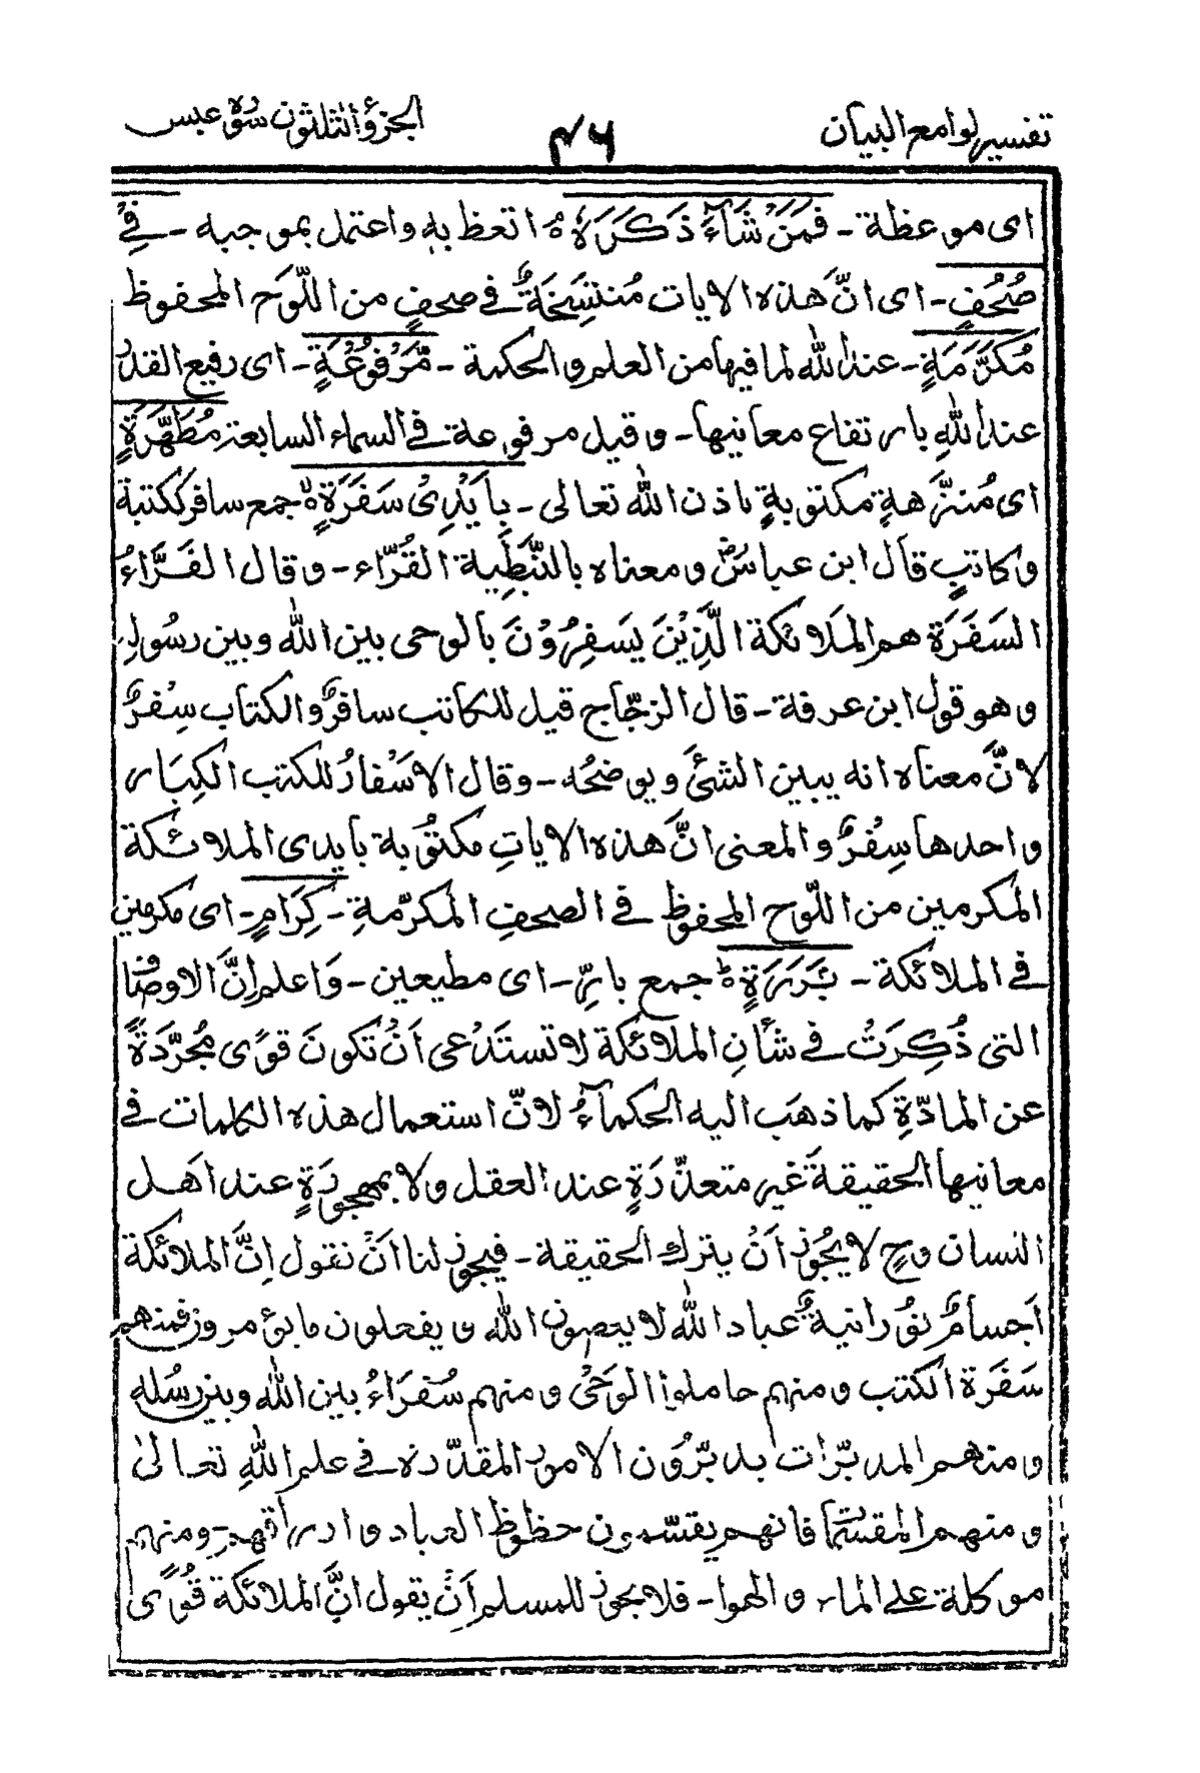 تفسير لوامع البيان
٤٦
الجزؤ الثلثون سورة عبس
اى موعظة - فَمَنْ شَآءَ ذَكَرَهٗ ۝ اتعظ بهٖ واعتمل بموجبه - فِيْ
صُحُفٍ - اى انَّ هٰذه الايات مُنتسَخَةٌ في صحفٍ من اللّوح المحفوظ
مُكَرَّمَةٍ - عند الله لما فيها من العلم والحكمة - مَّرْفُوْعَةٍ - اى رفيع القدر
عند اللهِ بارتفاع معانيها - وقيل مرفوعة في السماء السابعة مُطَهَّرَةٍ
اى مُنزَّهةٍ مكتوبةٍ باذن الله تعالى - بِاَيْدِىْ سَفَرَةٍ ۝ جمع سافر ككتبة
وكاتبٍ قال ابن عباسؓ ومعناه بالنَّبَطِية القُرّاء - وقال الفَرَّاءُ
السَفَرَة هم المَلائكة الَّذِيْنَ يَسفِرُوْنَ بالوحى بين الله وبين رسُولِهٖ
وهو قول ابن عرفة - قال الزجّاج قيل للكاتب سافرٌ والكتاب سِفرٌ
لانَّ معناه انه يبين الشئَ ويوضحُه - وقال الاسْفارُ للكتب الكِبَار
واحدها سِفْرٌ والمعنى انَّ هٰذه الاياتِ مكتُوبة بايدى الملائكة
المكرمين من اللّوح المحفوظ في الصحفِ المكرّمةِ - كِرَامٍ - اى مكرمين
في الملائكة - بَرَرَةٍ ۝ جمع بارٍّ - اى مطيعين - وَاعلم اِنَّ الاوصاف
التى ذُكِرَتْ في شأنِ الملائكة لا تستَدْعى اَنْ تكونَ قوًى مُجرَّدَةً
عن المادّةِ كما ذهَب اليه الحكمآءُ لانّ استعمال هذه الكلمات في
معانيها الحقيقةَ غير متعذّرَةٍ عند العقل ولا بمهجورَةٍ عند اهَل
اللسان وحٍ لا يجُوز اَنْ يترك الحقيقة - فيجوز لنا اَنْ نقول اِنَّ الملائكة
اَجسامٌ نوُرانيةٌ عباد الله لا يعصون الله ويفعلون ما يؤمرون فمنهم
سَفَرَة الكتب ومنهم حاملوا الوَحْى ومنهم سُفرَاءُ بين الله وبين رسُله
ومنهم المدبّرات يدبّرُون الامور المقدّرة في علم اللهِ تعالىٰ
ومنهم المقسّمات فانهم يقسّمون حظوظ العباد وارزاقهم - ومنهم
موكلة على الماء والهوا - فلا يجوز للمسلم اَنْ يقول انَّ الملائكة قُوًى